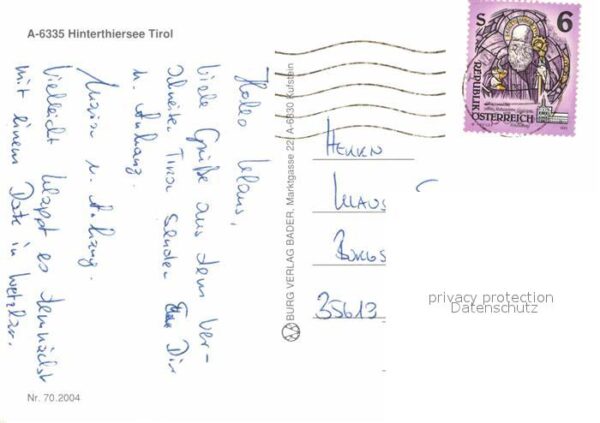 A-6335 Hinterthiersee Tirol
Hallo Klaus,
viele Grüße aus dem ver-
schneiten Tirol senden Dir
u. Anhang.
u. Anhang.
Vielleicht klappt es demnächst
mit einem Date in Wetzlar.
Nr. 70.2004
BURG VERLAG BADER, Marktgasse 22, A-6330 Kufstein
S 6
REPUBLIK
ÖSTERREICH
HERRN
KLAUS
35613
privacy protection
Datenschutz